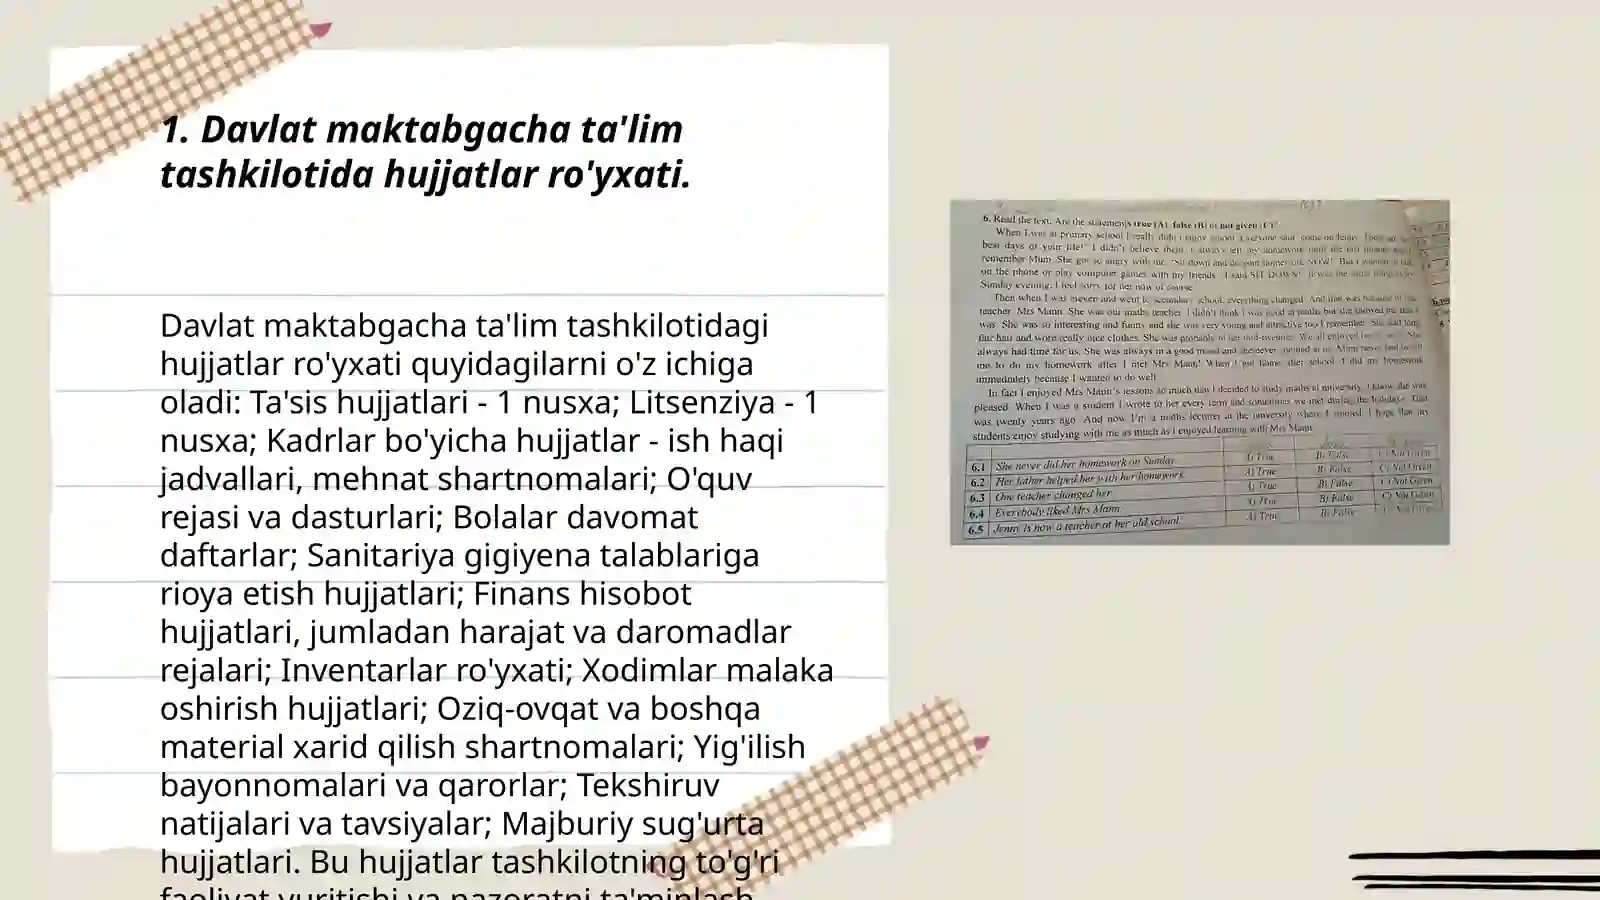 1. Davlat maktabgacha ta'lim
tashkilotida hujjatlar ro'yxati.
Davlat maktabgacha ta'lim tashkilotidagi
hujjatlar ro'yxati quyidagilarni o'z ichiga
oladi: Ta'sis hujjatlari - 1 nusxa; Litsenziya - 1
nusxa; Kadrlar bo'yicha hujjatlar - ish haqi
jadvallari, mehnat shartnomalari; O'quv
rejasi va dasturlari; Bolalar davomat
daftarlar; Sanitariya gigiyena talablariga
rioya etish hujjatlari; Finans hisobot
hujjatlari, jumladan harajat va daromadlar
rejalari; Inventarlar ro'yxati; Xodimlar malaka
oshirish hujjatlari; Oziq-ovqat va boshqa
material xarid qilish shartnomalari; Yig'ilish
bayonnomalari va qarorlar; Tekshiruv
natijalari va tavsiyalar; Majburiy sug'urta
hujjatlari. Bu hujjatlar tashkilotning to'g'ri
faoliyat yuritishi va nazoratni ta'minlash
6. Read the text. Are the statements true (A) false (B) or not given (C)?
When I was at primary school I really didn't enjoy school. Everyone said
best days of your life!" I didn't believe them. I always left my homework until the
remember Mum. She got so angry with me. "Sit down and do your homework NOW!" But I wanted to
on the phone or play computer games with my friends. I said SIT DOWN! It was the same thing every
Sunday evening. I feel sorry for her now of course.
Then when I was eleven and went to secondary school, everything changed. And that was because of
teacher Mrs Mann. She was our maths teacher. I didn't think I was good at maths but she showed me that I
was. She was so interesting and funny and she was very young and attractive too I remember. She had long
fair hair and wore really nice clothes. She was probably in her mid-twenties. We all enjoyed
always had time for us. She was always in a good mood and she never shouted at us. Mum never had to
me to do my homework after I met Mrs Mann! When I got home after school I did my homework
immediately because I wanted to do well.
In fact I enjoyed Mrs Mann's lessons so much that I decided to study maths at university. I know she was
pleased. When I was a student I wrote to her every term and sometimes we met during the holidays. That
was twenty years ago. And now I'm a maths lecturer at the university where I studied. I hope that my
students enjoy studying with me as much as I enjoyed learning with Mrs Mann.
6.1 She never did her homework on Sunday. A) True B) False C) Not Given
6.2 Her father helped her with her homework. A) True B) False C) Not Given
6.3 One teacher changed her A) True B) False C) Not Given
6.4 Everybody liked Mrs Mann. A) True B) False C) Not Given
6.5 Jenny is now a teacher at her old school. A) True B) False